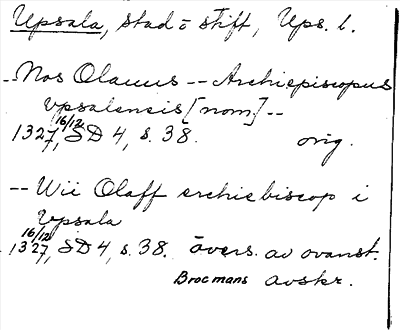 Upsala, stad o stift, Ups. l.
-- Nos Olauus -- Archiepiscopus
vpsalensis [nom.] --
1327 16/12, SD 4, s. 38. orig.
-- Wii Olaff erchiebiscop i
Vpsala
1327 16/12, SD 4, s. 38. övers. av ovanst.
Brocmans avskr.